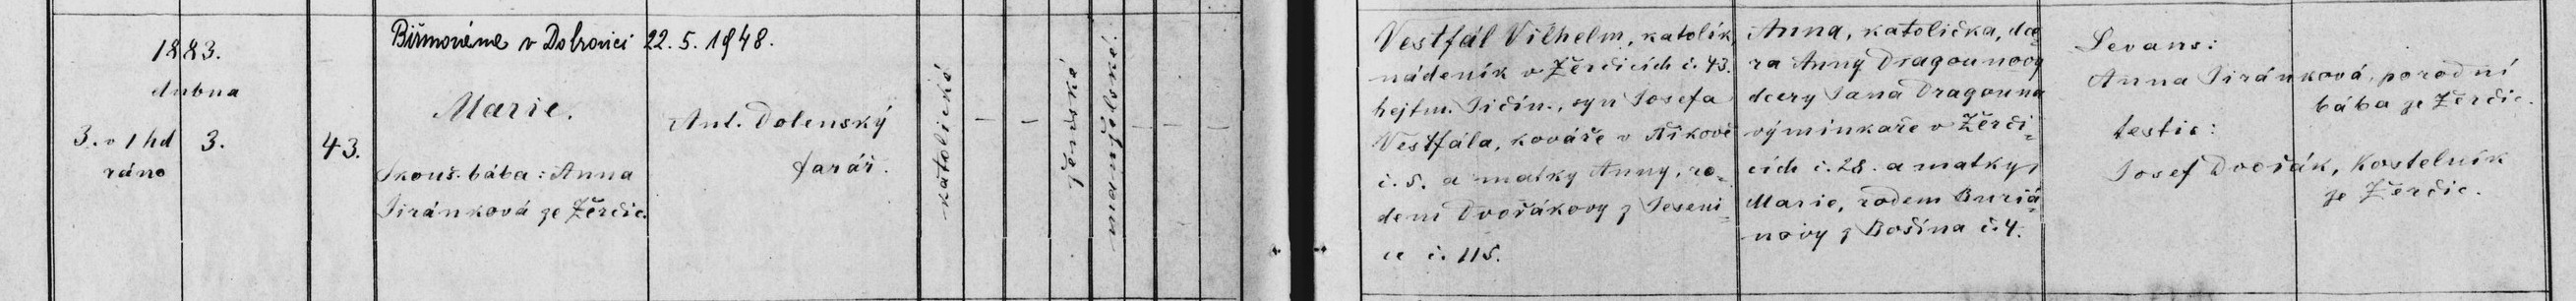 1883.
dubna
3. v 1 hd
ráno
3.
43.
Biřmována v Dobrovici 22. 5. 1948.
Marie.
Zkouš. bába: Anna
Jiránková ze Žerčic.
Ant. Dolenský
farář.
katolické
ženské
manželské.
Vestfál Vilhelm, katolík,
nádeník v Žerčicích č. 43.
hejtm. Jičín., syn Josefa
Vestfála, kováře v
č. 5. a matky Anny, ro-
dem Dvořákovy z Jeseni-
ce č. 115.
Anna, katolička, dce-
ra Anny Dragounovy
dcery Jana Dragouna
výminkaře v Žerči-
cích č. 28. a matky
Marie, rodem Buriá-
novy z Bošína č. 4.
Levans:
Anna Jiránková, porodní
bába ze Žerčic.
testis:
Josef Dvořák, Kostelník
ze Žerčic.